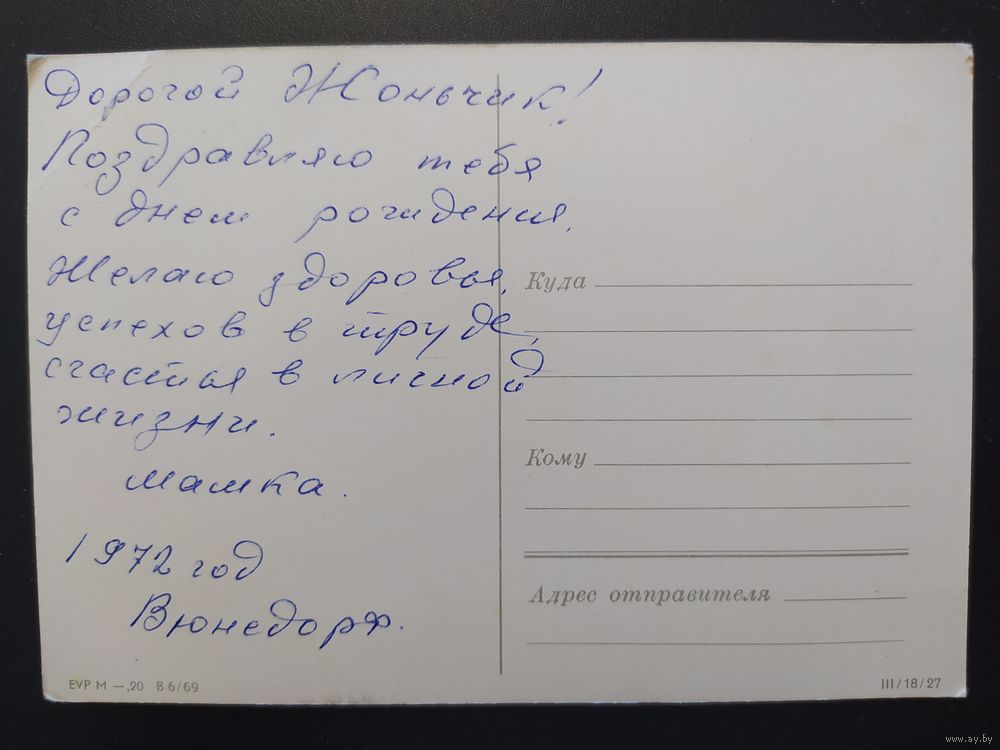 Дорогой Жоньчик!
Поздравляю тебя
с днем рождения.
Желаю здоровья,
успехов в труде,
счастья в личной
жизни.
Мамка.
1972 год
Вюнсдорф.
Куда
Кому
Адрес отправителя
EVP M —,20 B 6/69
III/18/27
www.ay.by